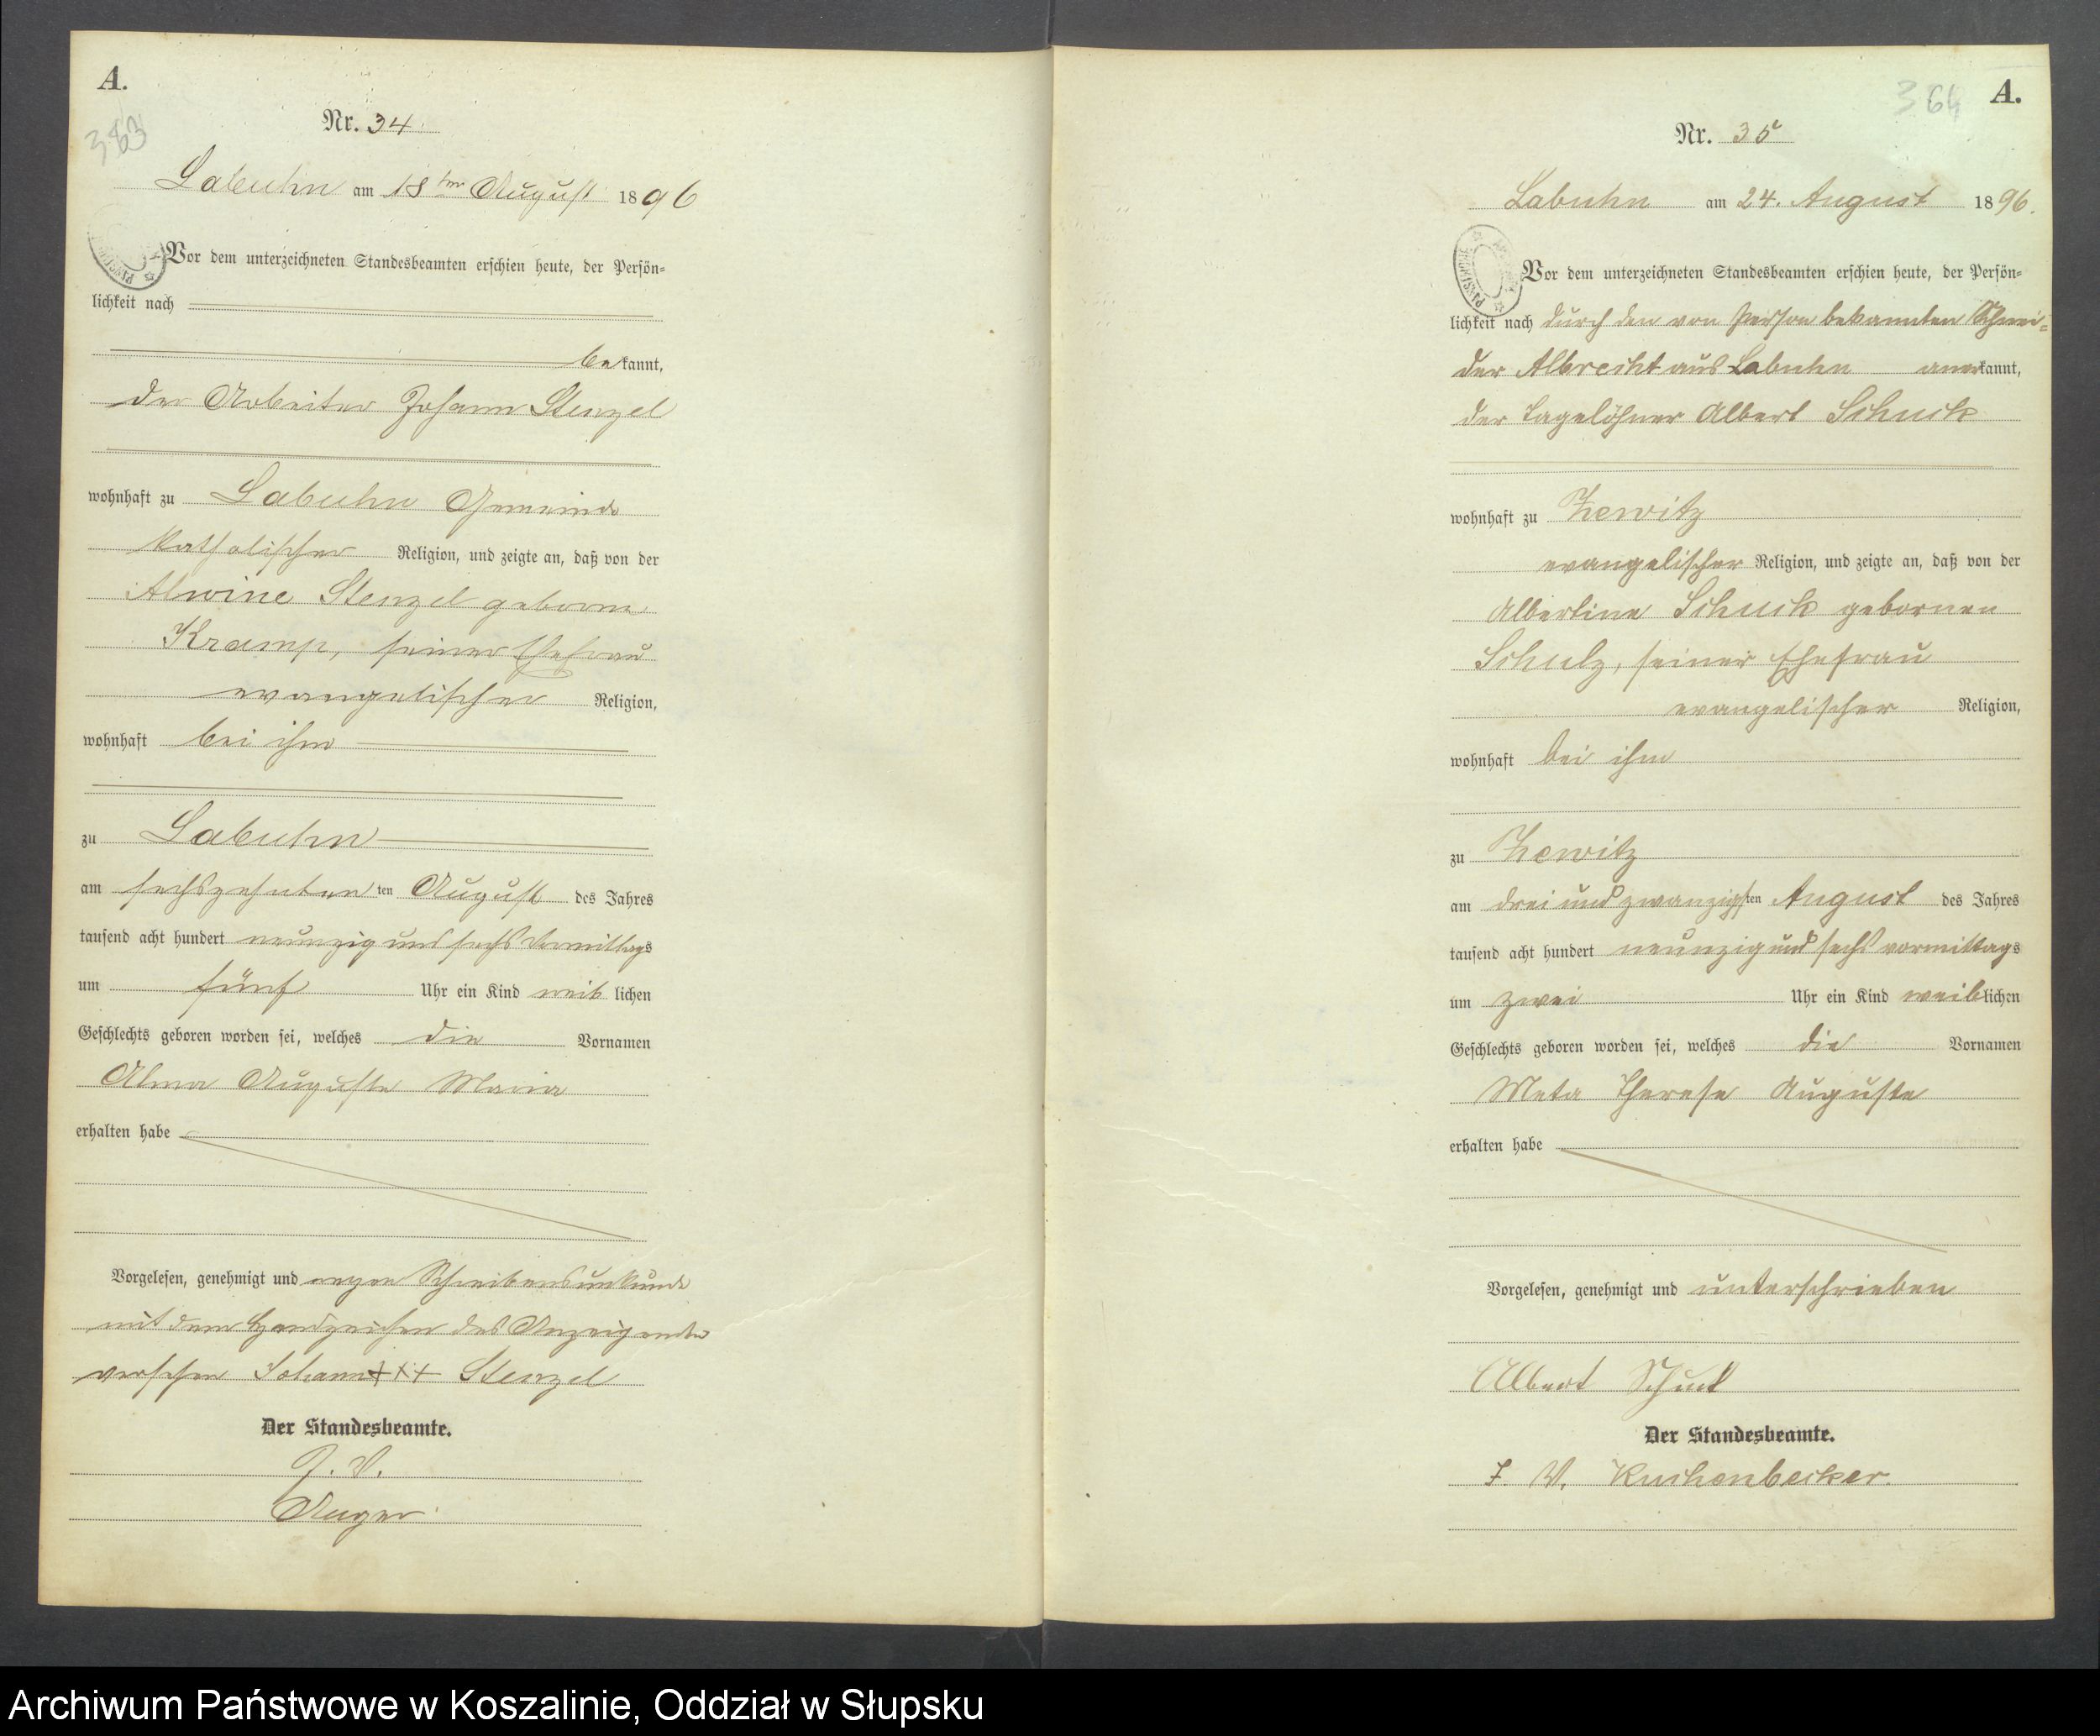 A.
383
Nr. 34
Labuhn am 18ten August 1896
Vor dem unterzeichneten Standesbeamten erschien heute, der Persön=
lichkeit nach
bekannt,
der Arbeiter Johann Stenzel
wohnhaft zu Labuhn Gemeinde
katholischer Religion, und zeigte an, daß von der
Alwine Stenzel geborne
Kramp, seiner Ehefrau
evangelischer Religion,
wohnhaft bei ihm
zu Labuhn
am sechszehnten ten August des Jahres
tausend acht hundert neunzig und sechs Vormittags
um fünf Uhr ein Kind weiblichen
Geschlechts geboren worden sei, welches die Vornamen
Alma Auguste Maria
erhalten habe
Vorgelesen, genehmigt und wegen Schreibensunkunde
mit dem Handzeichen des Anzeigenden
versehen Johann +++ Stenzel
Der Standesbeamte.
J. V.
A.
364
Nr. 35
Labuhn am 24. August 1896.
Vor dem unterzeichneten Standesbeamten erschien heute, der Persön=
lichkeit nach durch den von Person bekannten Schnei=
der Albrecht aus Labuhn anerkannt,
der Tagelöhner Albert Schuck
wohnhaft zu Zewitz
evangelischer Religion, und zeigte an, daß von der
Albertine Schuck gebornen
Schulz, seiner Ehefrau
evangelischer Religion,
wohnhaft bei ihm
zu Zewitz
am drei und zwanzigsten August des Jahres
tausend acht hundert neunzig und sechs vormittags
um zwei Uhr ein Kind weiblichen
Geschlechts geboren worden sei, welches die Vornamen
Meta Therese Auguste
erhalten habe
Vorgelesen, genehmigt und unterschrieben
Albert Schuck
Der Standesbeamte.
J. V. Kuchenbecker.
Archiwum Państwowe w Koszalinie, Oddział w Słupsku